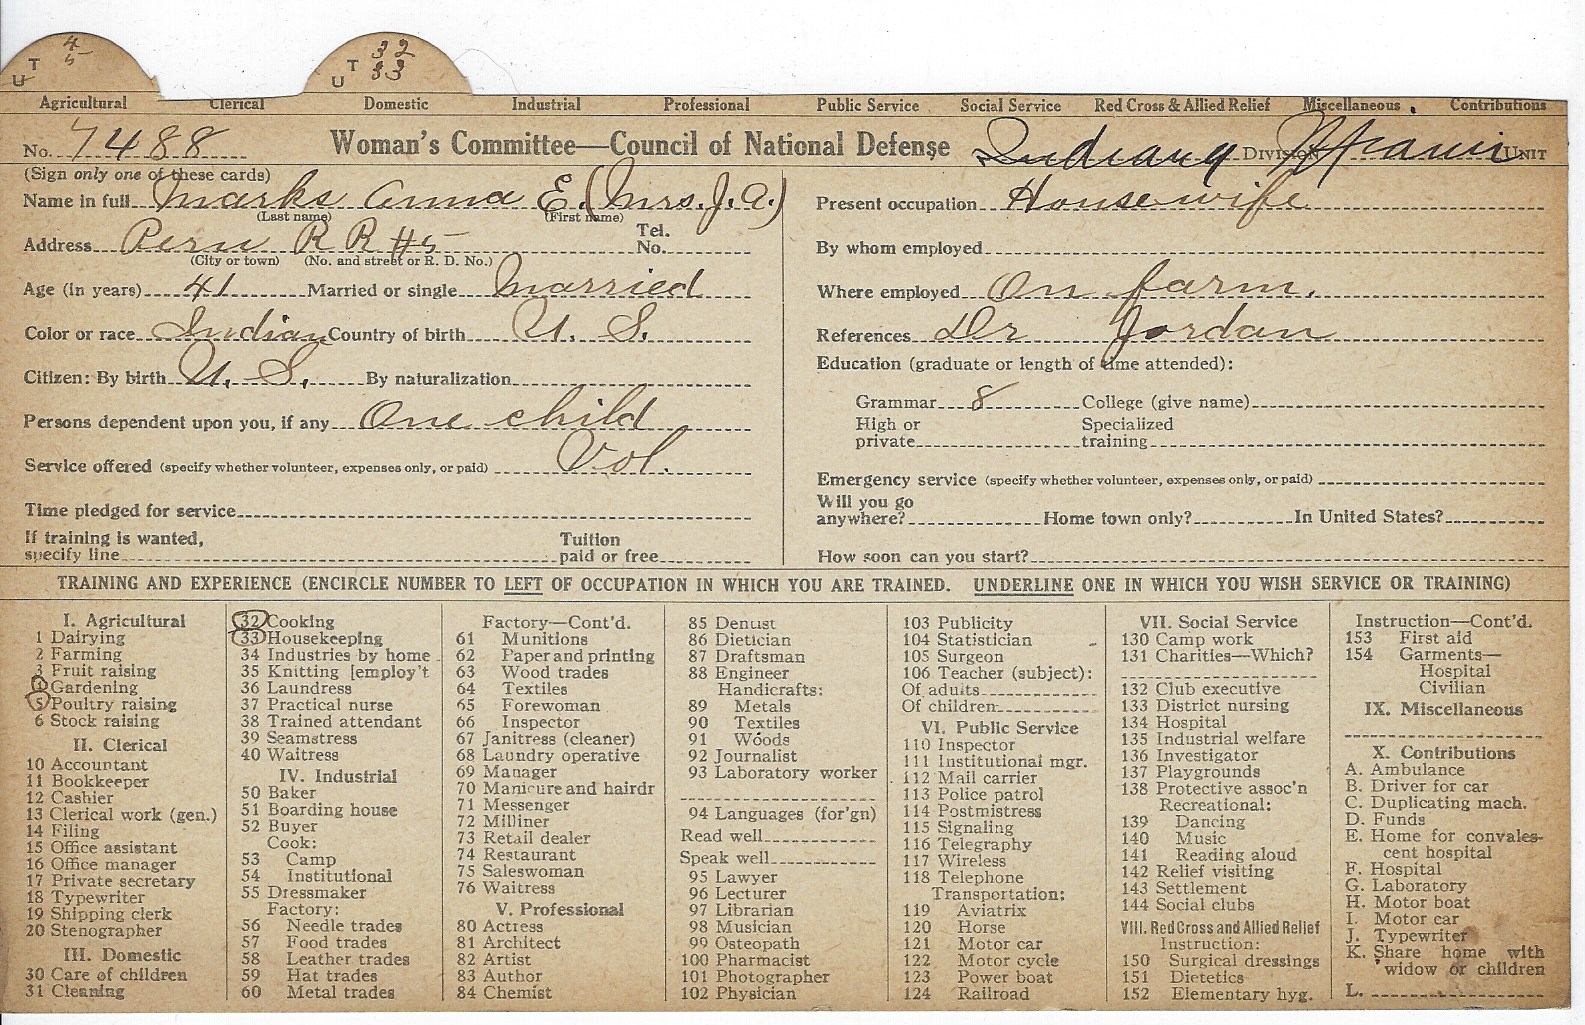 4
T 5
U
32
T 33
U
Agricultural Clerical Domestic Industrial Professional Public Service Social Service Red Cross & Allied Relief Miscellaneous Contributions
No. 7488 Woman's Committee—Council of National Defense Indiana Division Miami Unit
(Sign only one of these cards)
Name in full Marks Anna E. (Mrs. J. A.)
(Last name) (First name)
Address Peru R R #5 Tel. No.
(City or town) (No. and street or R. D. No.)
Age (in years) 41 Married or single Married
Color or race Indian Country of birth U. S.
Citizen: By birth U. S. By naturalization
Persons dependent upon you, if any One child
Service offered (specify whether volunteer, expenses only, or paid) Vol.
Time pledged for service
If training is wanted, specify line Tuition paid or free
Present occupation Housewife
By whom employed
Where employed On farm.
References Dr Jordan
Education (graduate or length of time attended):
Grammar 8 College (give name)
High or private Specialized training
Emergency service (specify whether volunteer, expenses only, or paid)
Will you go anywhere? Home town only? In United States?
How soon can you start?
TRAINING AND EXPERIENCE (ENCIRCLE NUMBER TO LEFT OF OCCUPATION IN WHICH YOU ARE TRAINED. UNDERLINE ONE IN WHICH YOU WISH SERVICE OR TRAINING)
I. Agricultural
1 Dairying
2 Farming
3 Fruit raising
4 Gardening
5 Poultry raising
6 Stock raising
II. Clerical
10 Accountant
11 Bookkeeper
12 Cashier
13 Clerical work (gen.)
14 Filing
15 Office assistant
16 Office manager
17 Private secretary
18 Typewriter
19 Shipping clerk
20 Stenographer
III. Domestic
30 Care of children
31 Cleaning
32 Cooking
33 Housekeeping
34 Industries by home
35 Knitting [employ't
36 Laundress
37 Practical nurse
38 Trained attendant
39 Seamstress
40 Waitress
IV. Industrial
50 Baker
51 Boarding house
52 Buyer
Cook:
53 Camp
54 Institutional
55 Dressmaker
Factory:
56 Needle trades
57 Food trades
58 Leather trades
59 Hat trades
60 Metal trades
Factory—Cont'd.
61 Munitions
62 Paper and printing
63 Wood trades
64 Textiles
65 Forewoman
66 Inspector
67 Janitress (cleaner)
68 Laundry operative
69 Manager
70 Manicure and hairdr
71 Messenger
72 Milliner
73 Retail dealer
74 Restaurant
75 Saleswoman
76 Waitress
V. Professional
80 Actress
81 Architect
82 Artist
83 Author
84 Chemist
85 Dentist
86 Dietician
87 Draftsman
88 Engineer
Handicrafts:
89 Metals
90 Textiles
91 Woods
92 Journalist
93 Laboratory worker
94 Languages (for'gn)
Read well
Speak well
95 Lawyer
96 Lecturer
97 Librarian
98 Musician
99 Osteopath
100 Pharmacist
101 Photographer
102 Physician
103 Publicity
104 Statistician
105 Surgeon
106 Teacher (subject):
Of adults
Of children
VI. Public Service
110 Inspector
111 Institutional mgr.
112 Mail carrier
113 Police patrol
114 Postmistress
115 Signaling
116 Telegraphy
117 Wireless
118 Telephone
Transportation:
119 Aviatrix
120 Horse
121 Motor car
122 Motor cycle
123 Power boat
124 Railroad
VII. Social Service
130 Camp work
131 Charities—Which?
132 Club executive
133 District nursing
134 Hospital
135 Industrial welfare
136 Investigator
137 Playgrounds
138 Protective assoc'n
Recreational:
139 Dancing
140 Music
141 Reading aloud
142 Relief visiting
143 Settlement
144 Social clubs
VIII. Red Cross and Allied Relief
Instruction:
150 Surgical dressings
151 Dietetics
152 Elementary hyg.
Instruction—Cont'd.
153 First aid
154 Garments—
Hospital
Civilian
IX. Miscellaneous
X. Contributions
A. Ambulance
B. Driver for car
C. Duplicating mach.
D. Funds
E. Home for convales-
cent hospital
F. Hospital
G. Laboratory
H. Motor boat
I. Motor car
J. Typewriter
K. Share home with
widow or children
L.